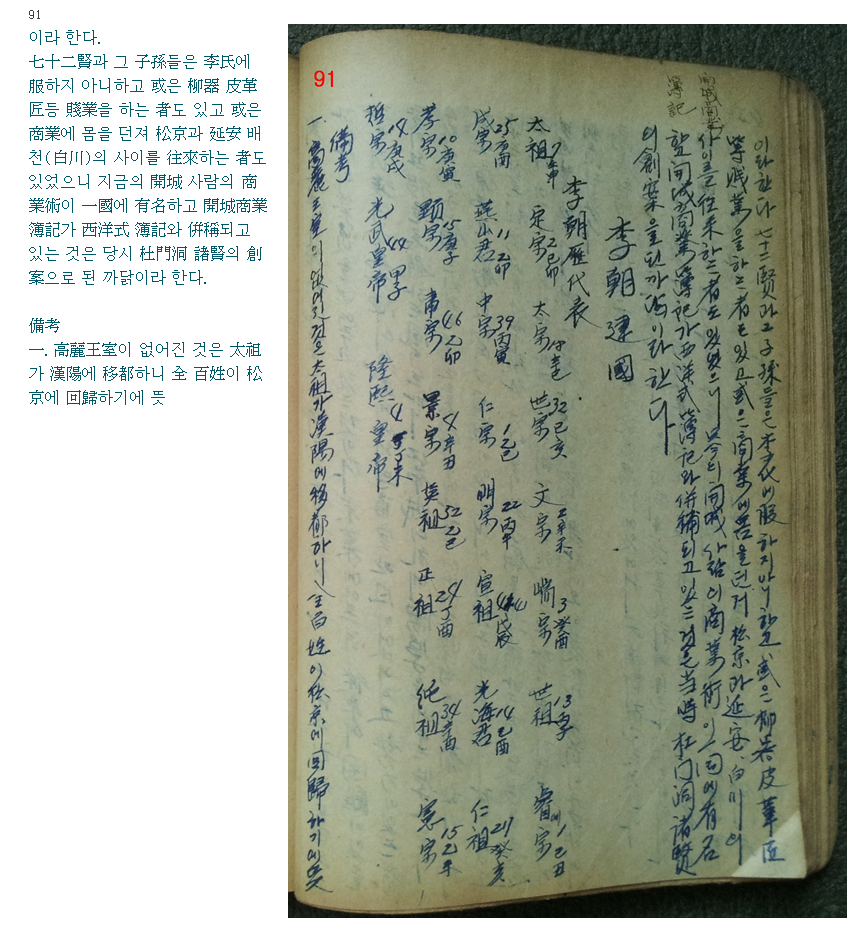 91
이라 한다.
七十二賢과 그 子孫들은 李氏에
服하지 아니하고 或은 柳器 皮革
匠등 賤業을 하는 者도 있고 或은
商業에 몸을 던져 松京과 延安 배
천(白川)의 사이를 往來하는 者도
있었으니 지금의 開城 사람의 商
業術이 一國에 有名하고 開城商業
簿記가 西洋式 簿記와 倂稱되고
있는 것은 당시 杜門洞 諸賢의 創
案으로 된 까닭이라 한다.
備考
一. 高麗王室이 없어진 것은 太祖
가 漢陽에 移都하니 全 百姓이 松
京에 回歸하기에 뜻
91
이라 한다 七十二賢과 그 子孫들은 李氏에 服하지 아니하고 或은 柳器 皮革匠
等 賤業을 하는 者도 있고 或은 商業에 몸을 던져 松京과 延安 白川의
사이를 往來하는 者도 있었으니 只今의 開城 사람의 商業術이 一國에 有名
開城商業
簿記
할 開城商業簿記가 西洋式 簿記와 併稱되고 있는 것은 当時 杜门洞 諸賢
의 創案을 된 까닭이라 한다
李朝建國
李朝歷代表
太祖 7 壬申 定宗 2 己卯 太宗 世宗 32 己亥 文宗 2 辛未 端宗 3 癸酉 世祖 13 丙子 睿宗 1 己丑
成宗 25 庚寅 燕山君 11 乙卯 中宗 39 丙寅 仁宗 1 乙巳 明宗 22 丙午 宣祖 41 戊辰 光海君 14 己酉 仁祖 27 癸亥
孝宗 10 庚寅 顯宗 15 庚子 肅宗 46 乙卯 景宗 4 辛丑 英祖 52 乙巳 正祖 24 丁酉 純祖 34 辛酉 憲宗 15 乙未
哲宗 14 庚戌 光武皇帝 44 甲子 隆熙皇帝 4 丁未
備考
一. 高麗王室이 없어진 것은 太祖가 漢陽에 移都하니 全 百姓이 松京에 回歸하기에 뜻